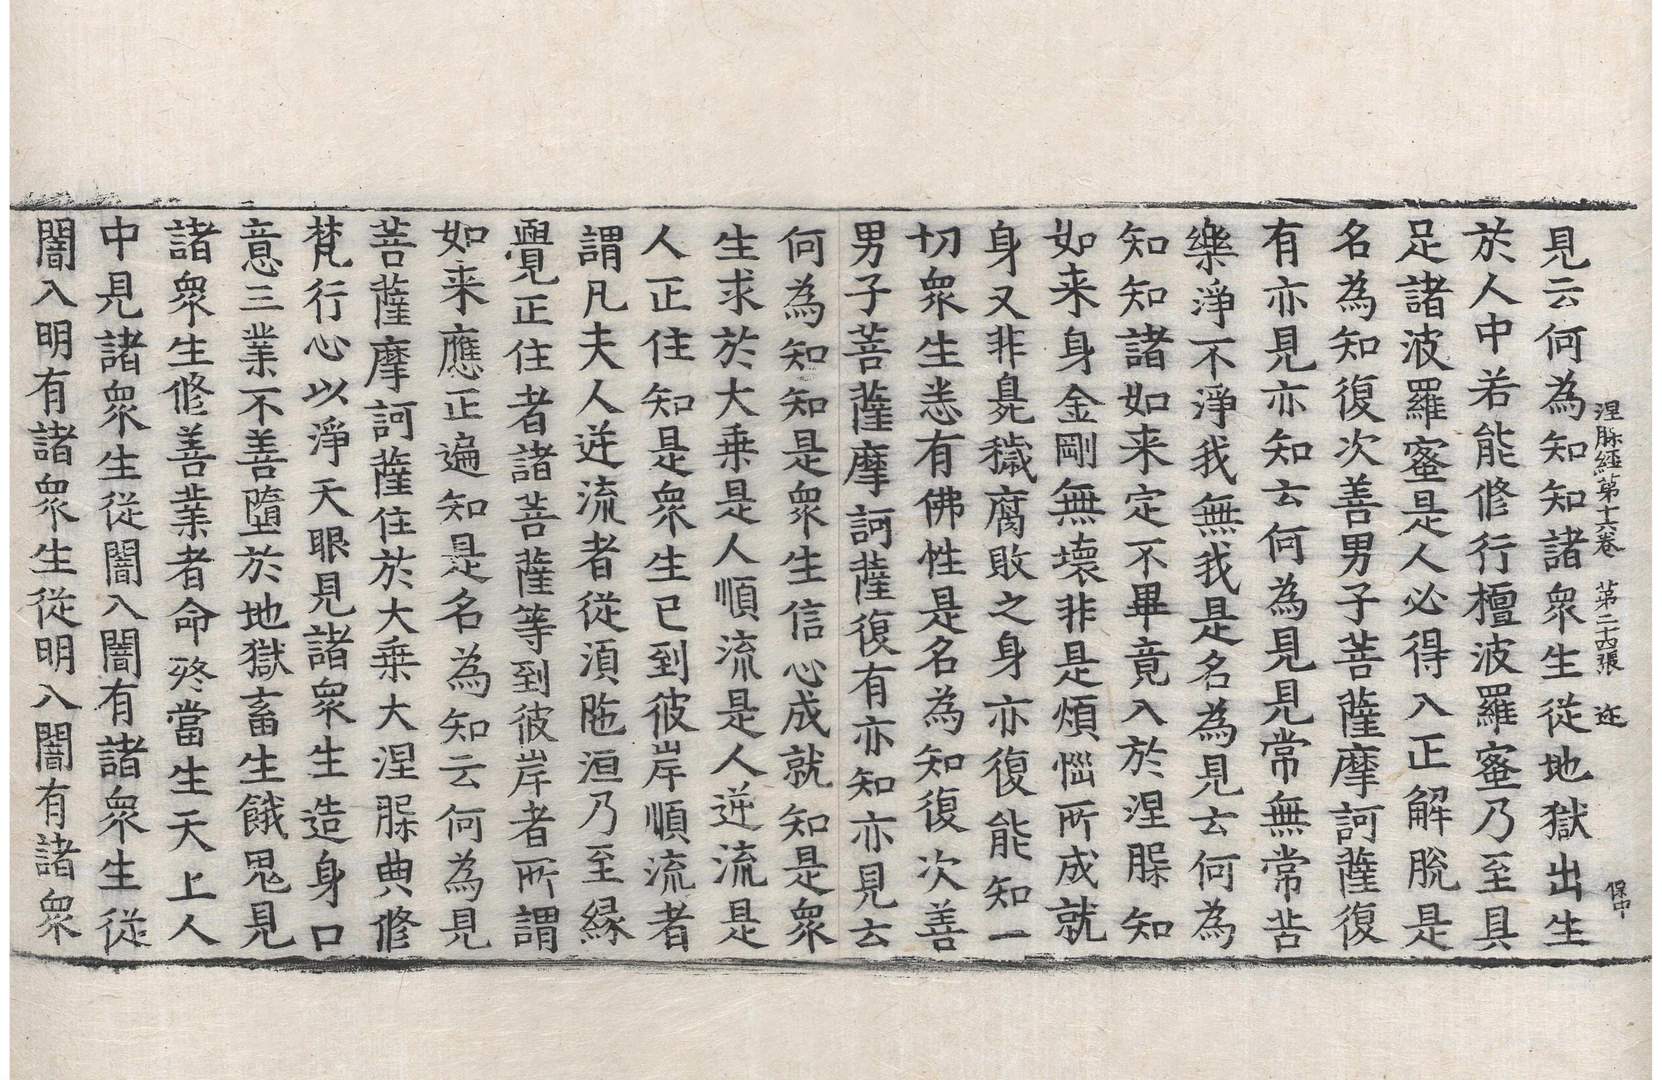 涅槃經第十六卷 第二十四張 迹
保中
見云何為知知諸衆生從地獄出生
於人中若能修行檀波羅蜜乃至具
足諸波羅蜜是人必得入正解脫是
名為知復次善男子菩薩摩訶薩復
有亦見亦知云何為見見常無常苦
樂淨不淨我無我是名為見云何為
知知諸如来定不畢竟入於涅槃知
如来身金剛無壞非是煩惱所成就
身又非臰穢腐敗之身亦復能知一
切衆生悉有佛性是名為知復次善
男子菩薩摩訶薩復有亦知亦見云
何為知知是衆生信心成就知是衆
生求於大乗是人順流是人逆流是
人正住知是衆生已到彼岸順流者
謂凡夫人逆流者從湏陁洹乃至縁
覺正住者諸菩薩等到彼岸者所謂
如来應正遍知是名為知云何為見
菩薩摩訶薩住於大乗大涅槃典修
梵行心以淨天眼見諸衆生造身口
意三業不善墮於地獄畜生餓鬼見
諸衆生修善業者命終當生天上人
中見諸衆生從闇入闇有諸衆生從
闇入明有諸衆生從明入闇有諸衆